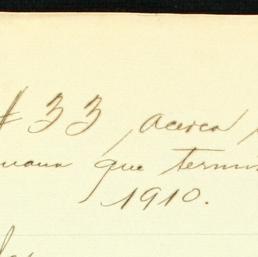 # 33, acerca
que termi
1910.